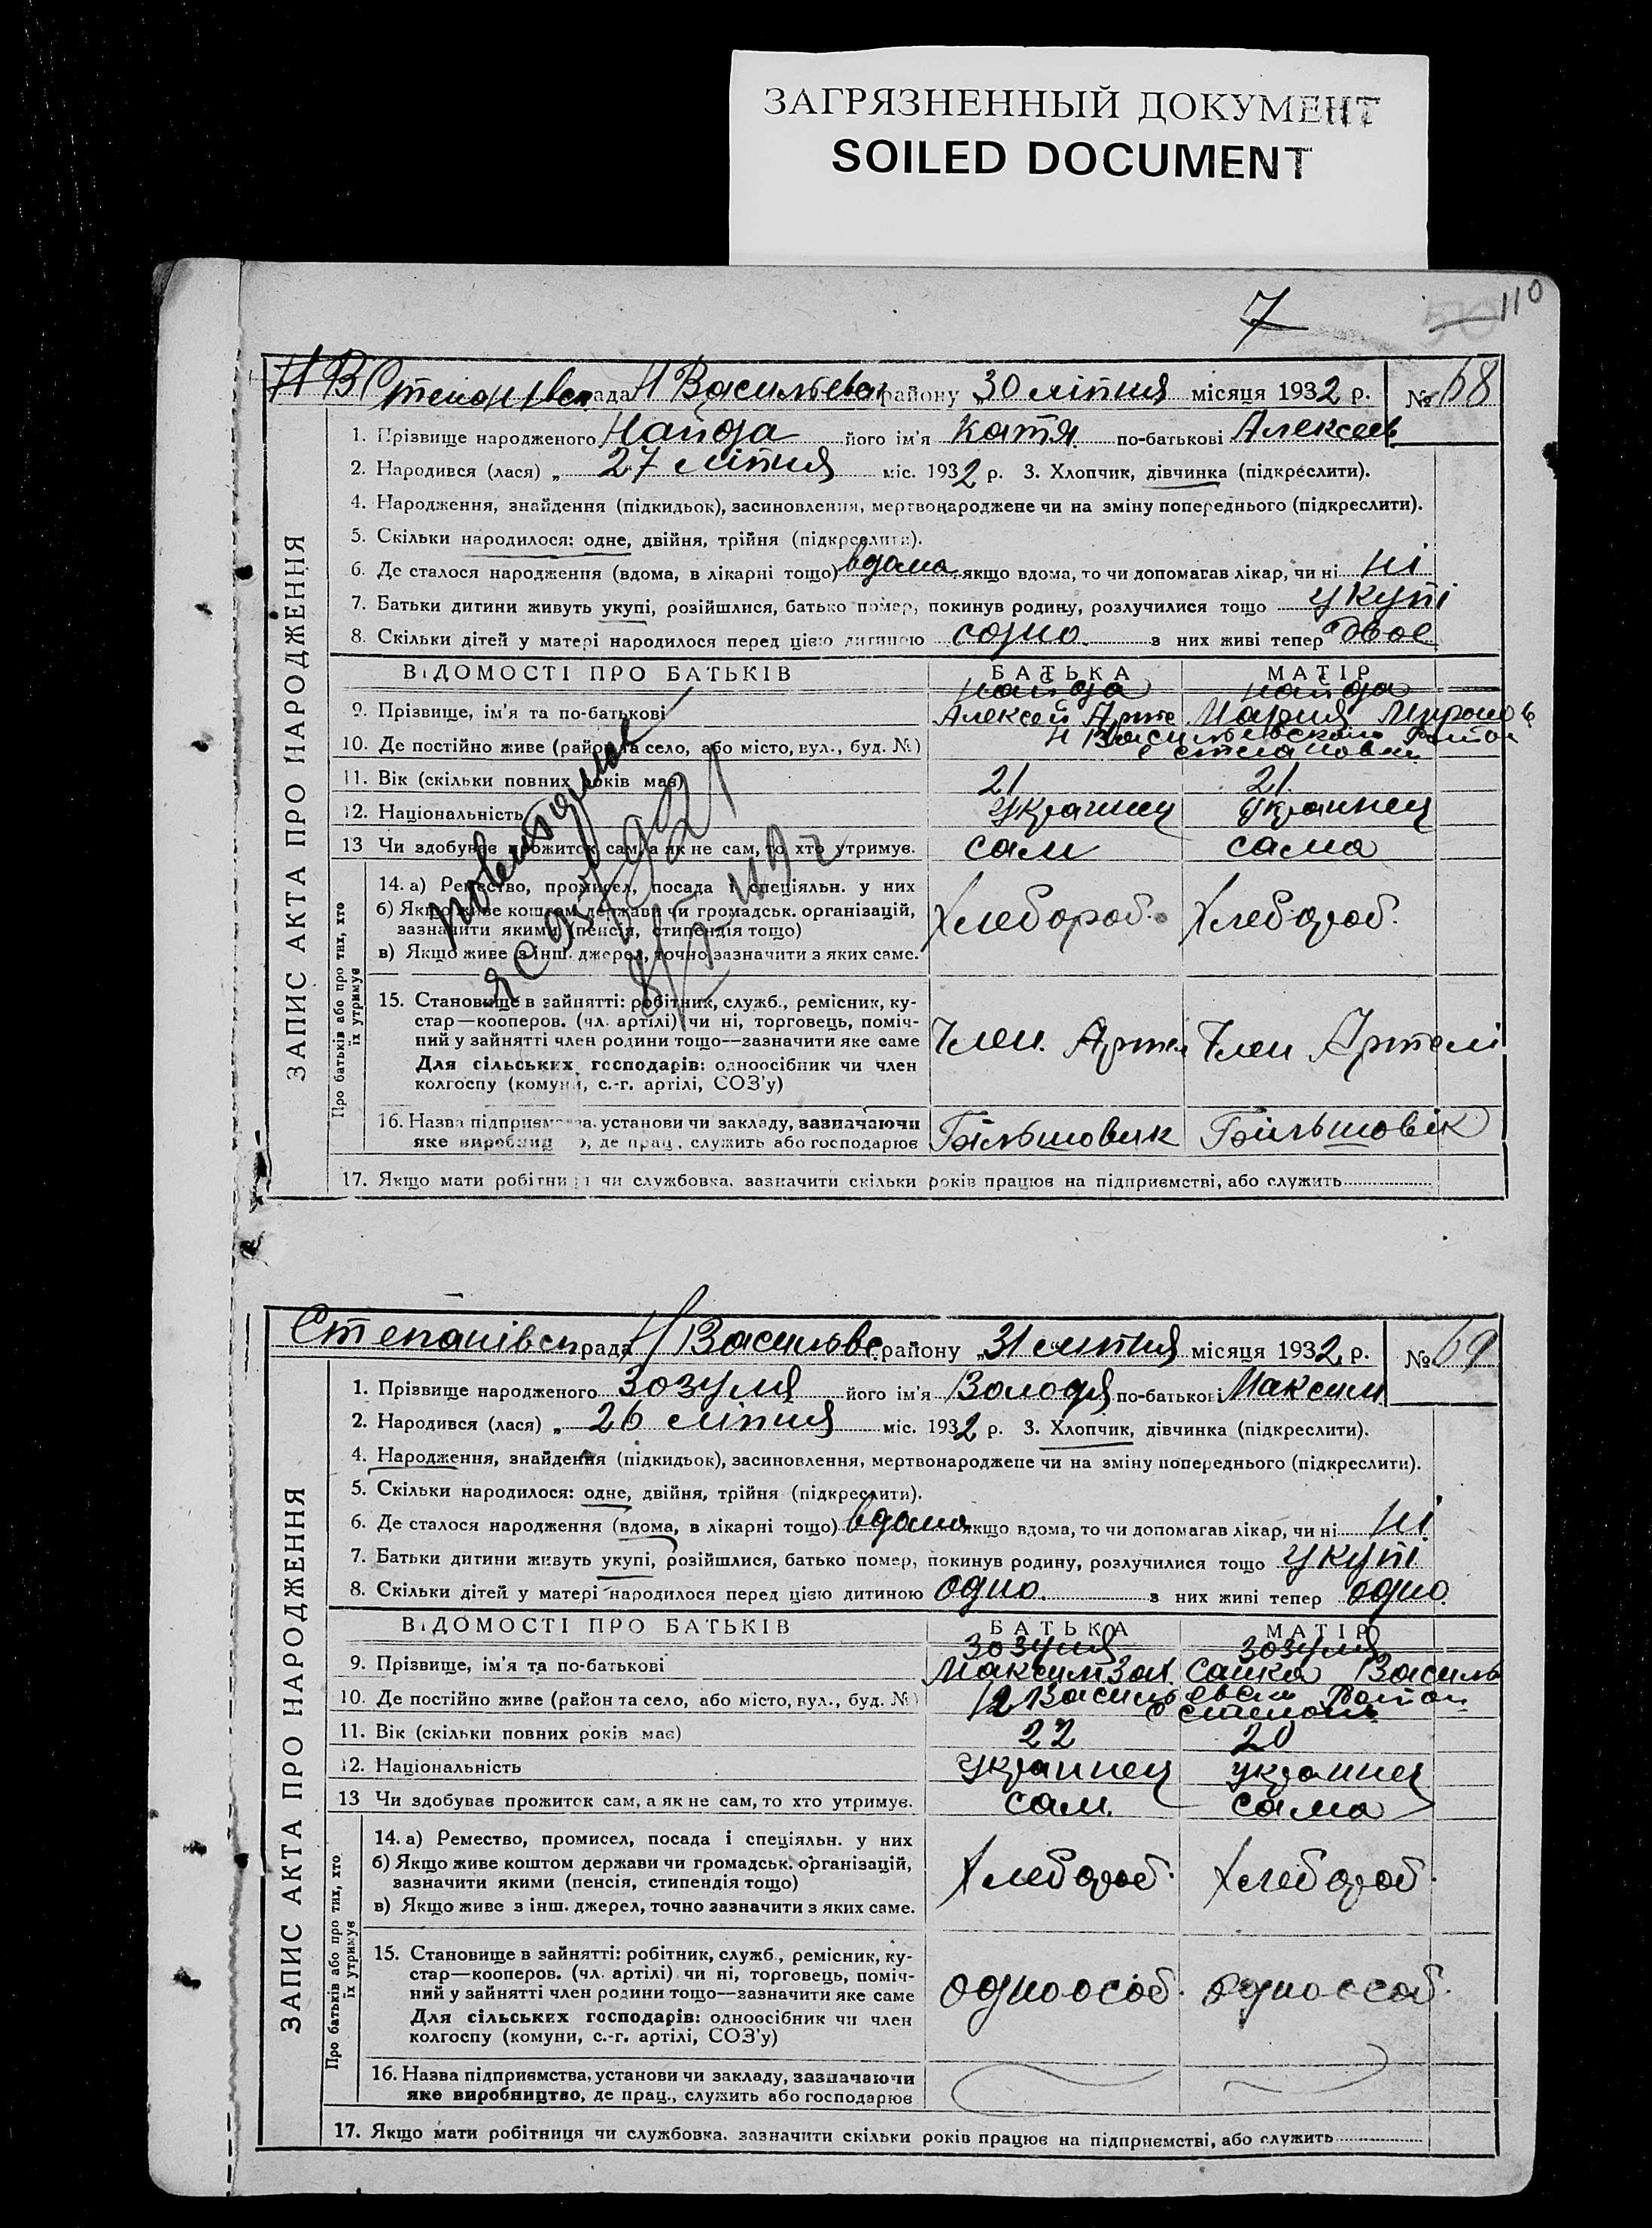 ЗАГРЯЗНЕННЫЙ ДОКУМЕНТ
SOILED DOCUMENT
7
110
рада Н Васильевск району „30 ліпня місяця 1932 р. № 68
ЗАПИС АКТА ПРО НАРОДЖЕННЯ
1. Прізвище народженого Найда його ім'я Катя по-батькові Алексеев
2. Народився (лася) „ 27 ліпня міс. 1932 р. 3. Хлопчик, дівчинка (підкреслити).
4. Народження, знайдення (підкидьок), засиновлення, мертвонароджене чи на зміну попереднього (підкреслити).
5. Скільки народилося: одне, двійня, трійня (підкреслити).
6. Де сталося народження (вдома, в лікарні тощо) вдома якщо вдома, то чи допомагав лікар, чи ні ні
7. Батьки дитини живуть укупі, розійшлися, батько помер, покинув родину, розлучилися тощо укупі
8. Скільки дітей у матері народилося перед цією дитиною одно з них живі тепер двое
ВІДОМОСТІ ПРО БАТЬКІВ БАТЬКА МАТІР
найда найда
9. Прізвище, ім'я та по-батькові Алексей Арте Мария Миронов
10. Де постійно живе (район та село, або місто, вул., буд. №) Н Васильевском
11. Вік (скільки повних років має) 21 21
12. Національність Украинец Украинец
13 Чи здобуває прожиток сам, а як не сам, то хто утримує. сам сама
Про батьків або про тих, хто їх утримує
14. а) Ремество, промисел, посада і спеціяльн. у них
б) Якщо живе коштом держави чи громадськ. організацій,
зазначити якими (пенсія, стипендія тощо) Хлебороб. Хлебороб.
в) Якщо живе з інш. джерел, точно зазначити з яких саме.
15. Становище в зайнятті: робітник, служб., ремісник, ку-
стар—кооперов. (чл. артілі) чи ні, торговець, поміч-
ний у зайнятті член родини тощо—зазначити яке саме Член Артел Член Артелі
Для сільських господарів: одноосібник чи член
колгоспу (комуни, с.-г. артілі, СОЗ'у)
16. Назва підприємства, установи чи закладу, зазначаючи
яке виробництво, де прац., служить або господарює Більшовик Більшовік
17. Якщо мати робітниця чи службовка, зазначити скільки років працює на підприємстві, або служить
Степанівсп рада Н Васильвс району „31 ліпня місяця 1932 р. № 69
ЗАПИС АКТА ПРО НАРОДЖЕННЯ
1. Прізвище народженого Зозуля його ім'я Володя по-батькові Максим
2. Народився (лася) „ 26 ліпня міс. 1932 р. 3. Хлопчик, дівчинка (підкреслити).
4. Народження, знайдення (підкидьок), засиновлення, мертвонароджене чи на зміну попереднього (підкреслити).
5. Скільки народилося: одне, двійня, трійня (підкреслити).
6. Де сталося народження (вдома, в лікарні тощо) вдома якщо вдома, то чи допомагав лікар, чи ні ні
7. Батьки дитини живуть укупі, розійшлися, батько помер, покинув родину, розлучилися тощо укупі
8. Скільки дітей у матері народилося перед цією дитиною одно. з них живі тепер одно
ВІДОМОСТІ ПРО БАТЬКІВ БАТЬКА МАТІР
зозуля зозуля
9. Прізвище, ім'я та по-батькові Максим Зах. Сашка Василь
10. Де постійно живе (район та село, або місто, вул., буд. №)
11. Вік (скільки повних років має) 22 20
12. Національність Украинец украинец
13 Чи здобуває прожиток сам, а як не сам, то хто утримує. сам. сама
Про батьків або про тих, хто їх утримує
14. а) Ремество, промисел, посада і спеціяльн. у них
б) Якщо живе коштом держави чи громадськ. організацій,
зазначити якими (пенсія, стипендія тощо) Хлебороб. Хлебороб.
в) Якщо живе з інш. джерел, точно зазначити з яких саме.
15. Становище в зайнятті: робітник, служб., ремісник, ку-
стар—кооперов. (чл. артілі) чи ні, торговець, поміч-
ний у зайнятті член родини тощо—зазначити яке саме одноособ. одноособ.
Для сільських господарів: одноосібник чи член
колгоспу (комуни, с.-г. артілі, СОЗ'у)
16. Назва підприємства, установи чи закладу, зазначаючи
яке виробництво, де прац., служить або господарює
17. Якщо мати робітниця чи службовка, зазначити скільки років працює на підприємстві, або служить